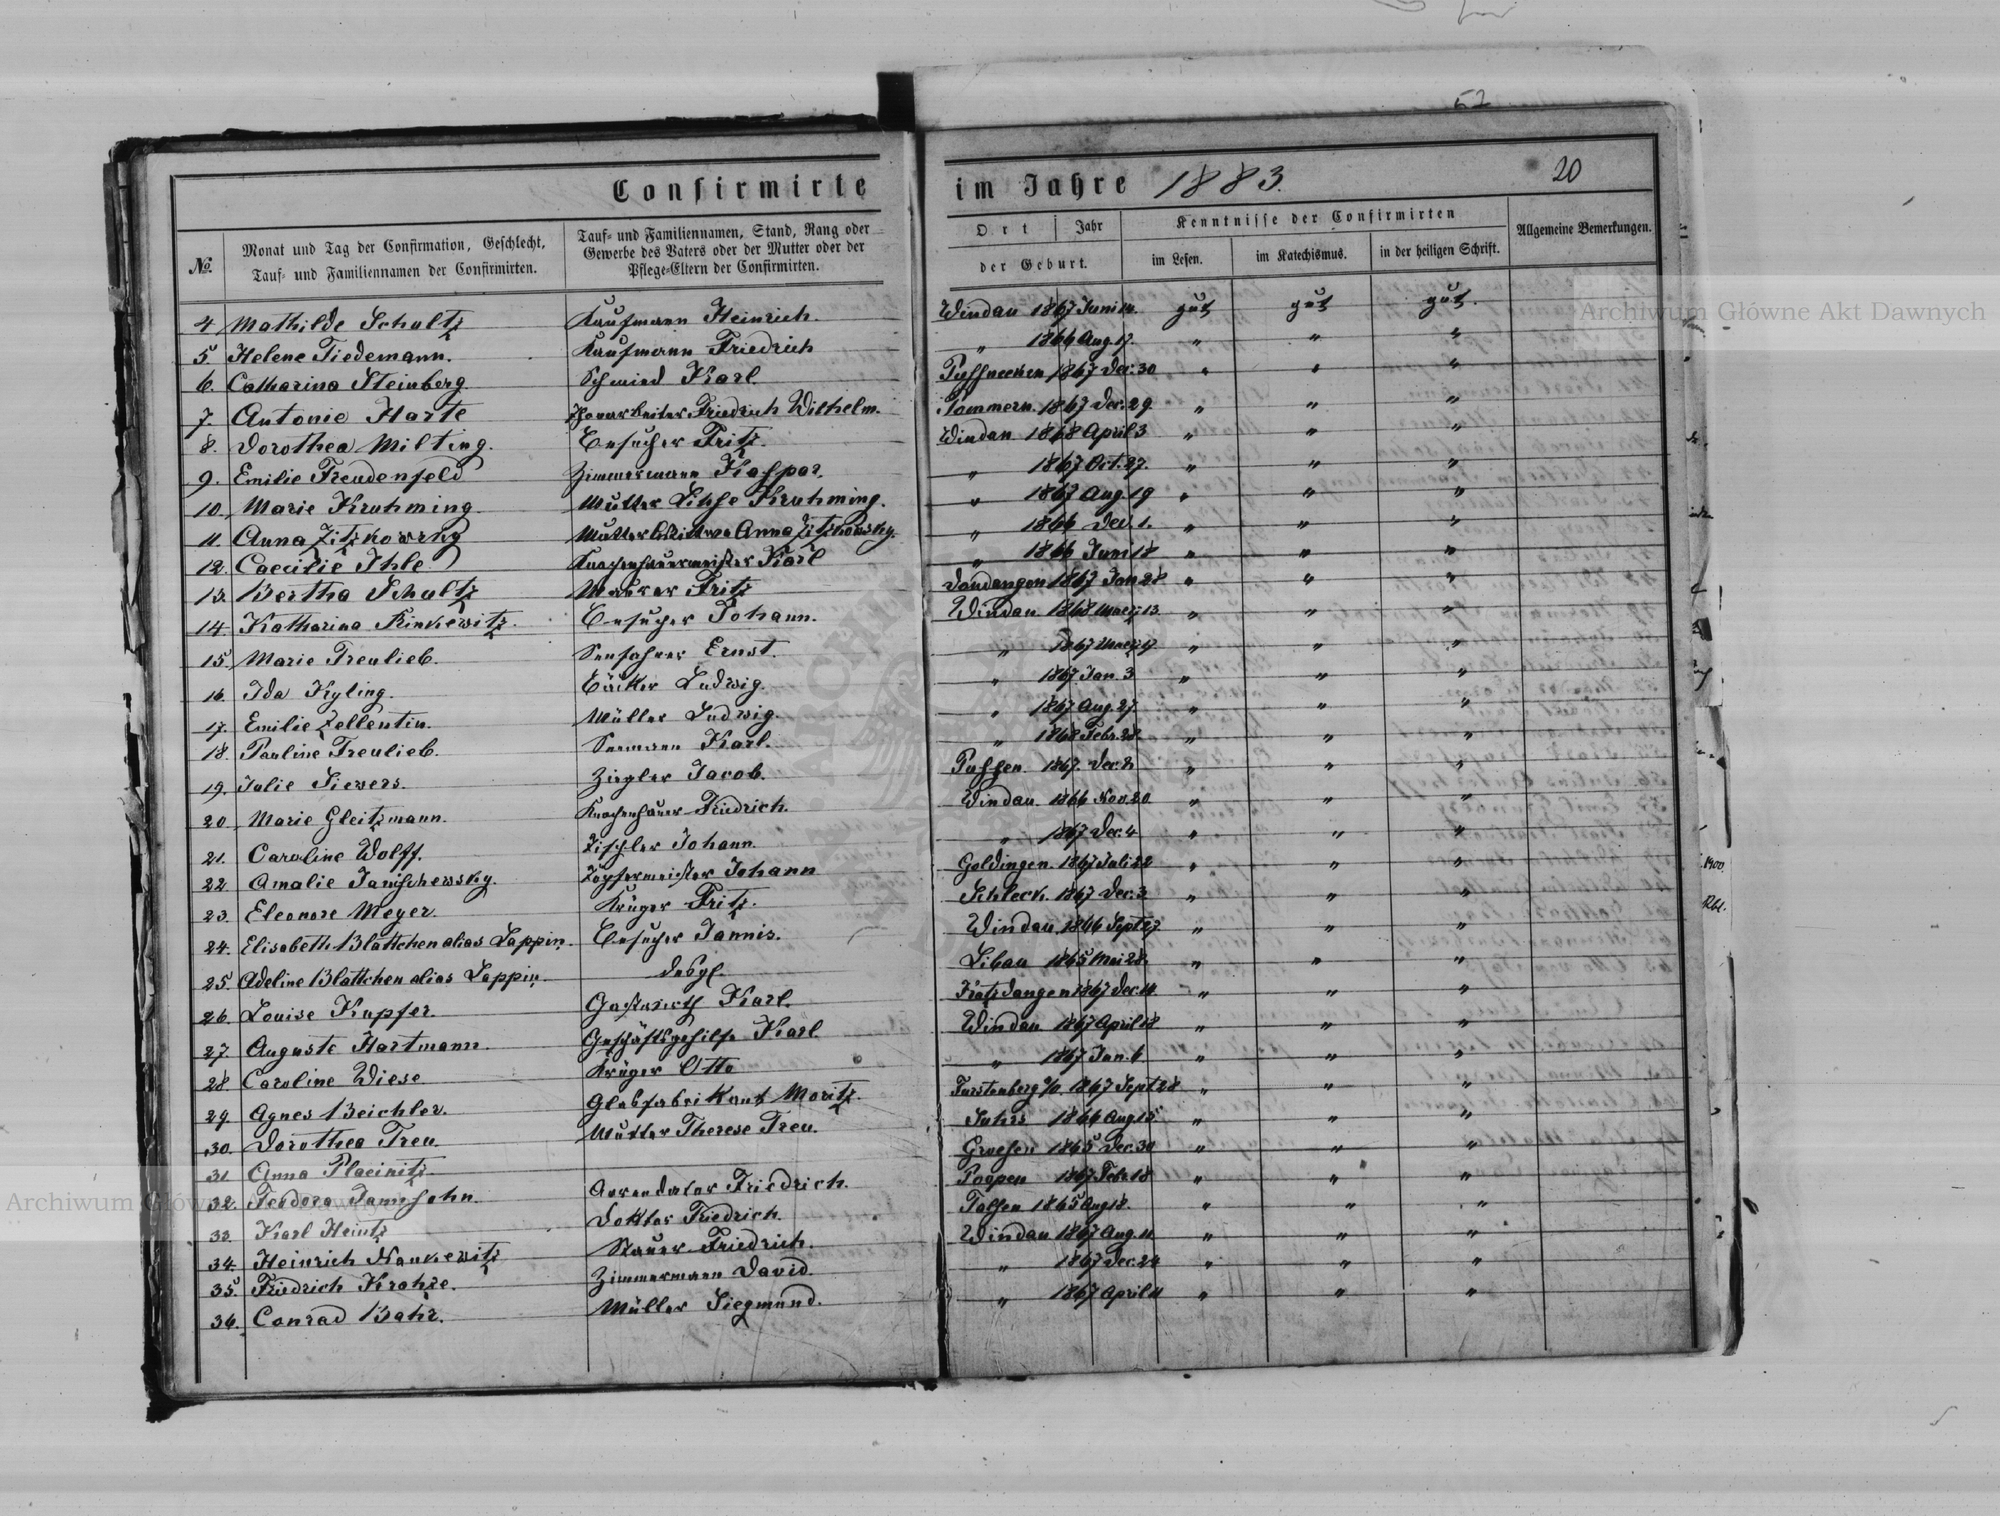 52
Confirmirte im Jahre 1883. 20
№ Monat und Tag der Confirmation, Geschlecht, Tauf- und Familiennamen der Confirmirten. Tauf- und Familiennamen, Stand, Rang oder Gewerbe des Vaters oder der Mutter oder der Pflege-Eltern der Confirmirten. Ort Jahr der Geburt. Kenntnisse der Confirmirten im Lesen. im Katechismus. in der heiligen Schrift. Allgemeine Bemerkungen.
4 Mathilde Schultz Kaufmann Heinrich. Windau 1867 Juni 14. gut gut gut.
5 Helene Tiedemann. Kaufmann Friedrich " 1866 Aug. 17. " " "
6. Catharina Steinberg Schmied Karl 1867 Dec. 30 " " "
7. Antonie Harte Friedrich Wilhelm. Pommern. 1867 Dec. 29. " " "
8. Dorothea Milting. Besucher Fritz. Windau 1868 April 3 " " "
9. Emilie Freudenfeld Zimmermann Kaspar. " 1867 Oct. 27. " " "
10. Marie Kruhming. Mutter Lihse Kruhming. " 1867 Aug. 19 " " "
11. Anna Zitzkowsky Mutter Wittwe Anna Zitzkowsky. " 1866 Dec. 1. " " "
12. Caecilie Ihle Knochenhauermeister Karl " 1866 Juni 18 " " "
13. Bertha Schultz Maurer Fritz Dondangen 1867 Jan 28 " " "
14. Katharina Rinkewitz. Besucher Johann. Windau 1868 Maerz 13. " " "
15. Marie Treulieb. Seefahrer Ernst. " 1867 Maerz 17. " " "
16. Ida Kyling. Bäcker Ludwig. " 1867. Jan. 3 " " "
17. Emilie Zellentin. Müller Ludwig. " 1867 Aug. 27. " " "
18. Pauline Treulieb. Seemann Karl. " 1868 Febr. 28. " " "
19. Julie Siewers. Ziegler Jacob. Pussen. 1867. Dec. 2. " " "
20. Marie Gleitzmann. Knochenhauer Friedrich. Windau. 1866 Nov. 20. " " "
21. Caroline Wolff. Tischler Johann. " 1867 Dec. 4 " " "
22. Amalie Janischewsky. Töpfermeister Johann Goldingen. 1867 Juli 22 " " "
23. Eleonore Meyer. Krüger Fritz. Schleck. 1867 Dec. 3 " " "
24. Elisabeth Blattchen alias Lappin. Besucher Jannis. Windau. 1866 Sept 27 " " "
25. Adeline Blattchen alias Lappin. desgl. Libau 1865 Mai 28. " " "
26. Louise Kupfer. Gastwirth Karl. Katzdangen 1867 Dec. 14. " " "
27. Auguste Hartmann. Geschäftsgehilfe Karl Windau 1867 April 18 " " "
28. Caroline Wiese Krüger Otto " 1867 Jan. 6. " " "
29. Agnes Beichler. Glasfabrikant Moritz. Furstenberg a/O 1867 Sept 28 " " "
30. Dorothea Treu. Mutter Therese Treu. 1866 Aug. 15. " " "
31. Anna Placinitz 1865 Dec. 30 " " "
32. Teodora Jannsohn. Arrendator Friedrich. Popen 1867 Febr 18 " " "
33. Karl Heintz Doktor Friedrich. Talsen 1865 Aug 18. " " "
34. Heinrich Nankewitz Friedrich. Windau 1867 Aug. 11 " " "
35. Friedrich Krohze. Zimmermann David. " 1867 Dec. 24 " " "
36. Conrad Bahr. Müller Siegmund. " 1867 April 11 " " "
Archiwum Główne Akt Dawnych
Archiwum Główne Akt Dawnych